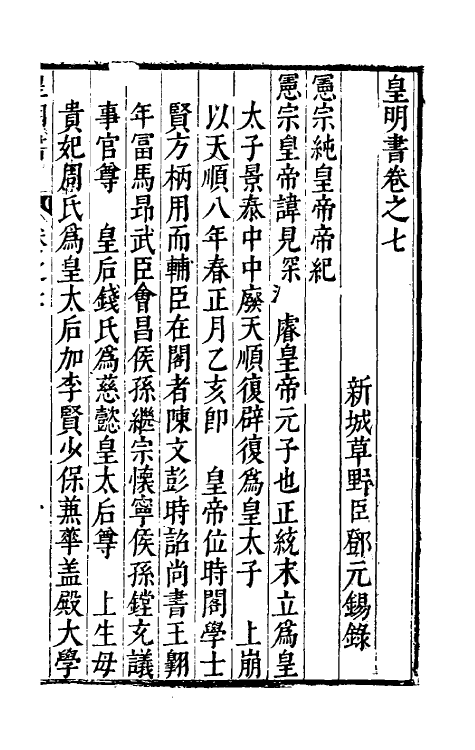 皇明書卷之七
新城草野臣鄧元錫錄
憲宗純皇帝帝紀
憲宗皇帝諱見深 睿皇帝元子也正統末立爲皇
太子景泰中中廢天順復辟復爲皇太子 上崩
以天順八年春正月乙亥卽 皇帝位時閣學士
賢方柄用而輔臣在閣者陳文彭時詔尚書王翱
年富馬昂武臣會昌侯孫繼宗懷寧侯孫鏜充議
事官尊 皇后錢氏爲慈懿皇太后尊 上生母
貴妃周氏爲皇太后加李賢少保兼華盖殿大學